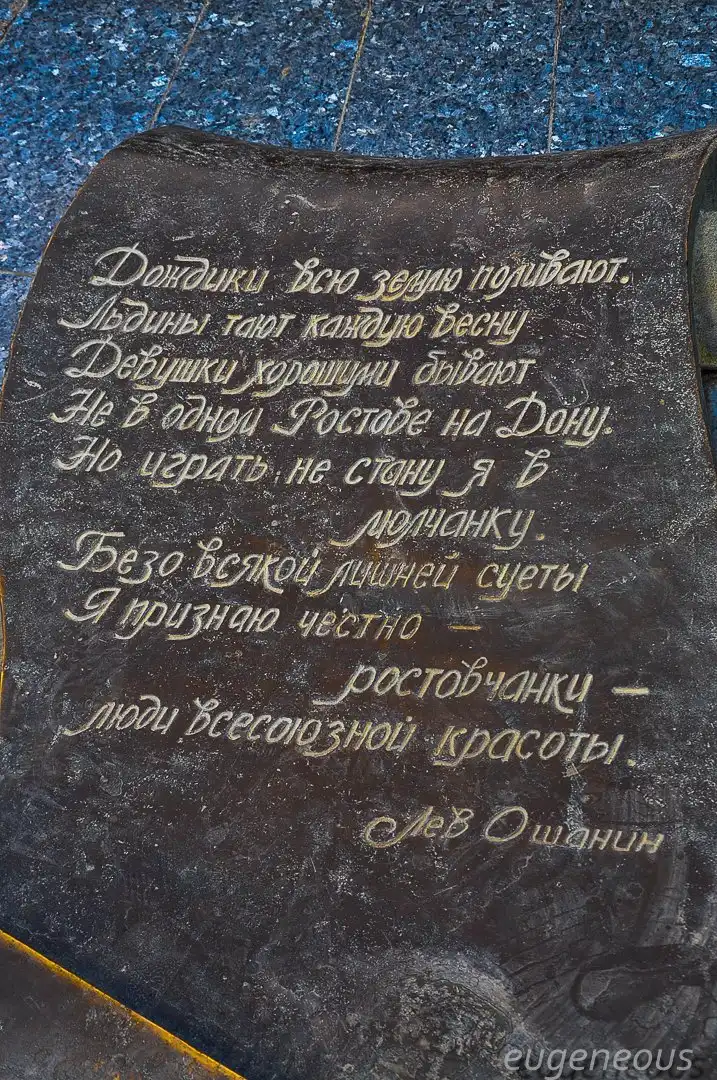 Дождики всю землю поливают.
Льдины тают каждую весну
Девушки хорошими бывают
Не в одном Ростове на Дону.
Но играть не стану я в
молчанку.
Безо всякой лишней суеты
Я признаю честно –
ростовчанки –
люди всесоюзной красоты.
Лев Ошанин
eugeneous